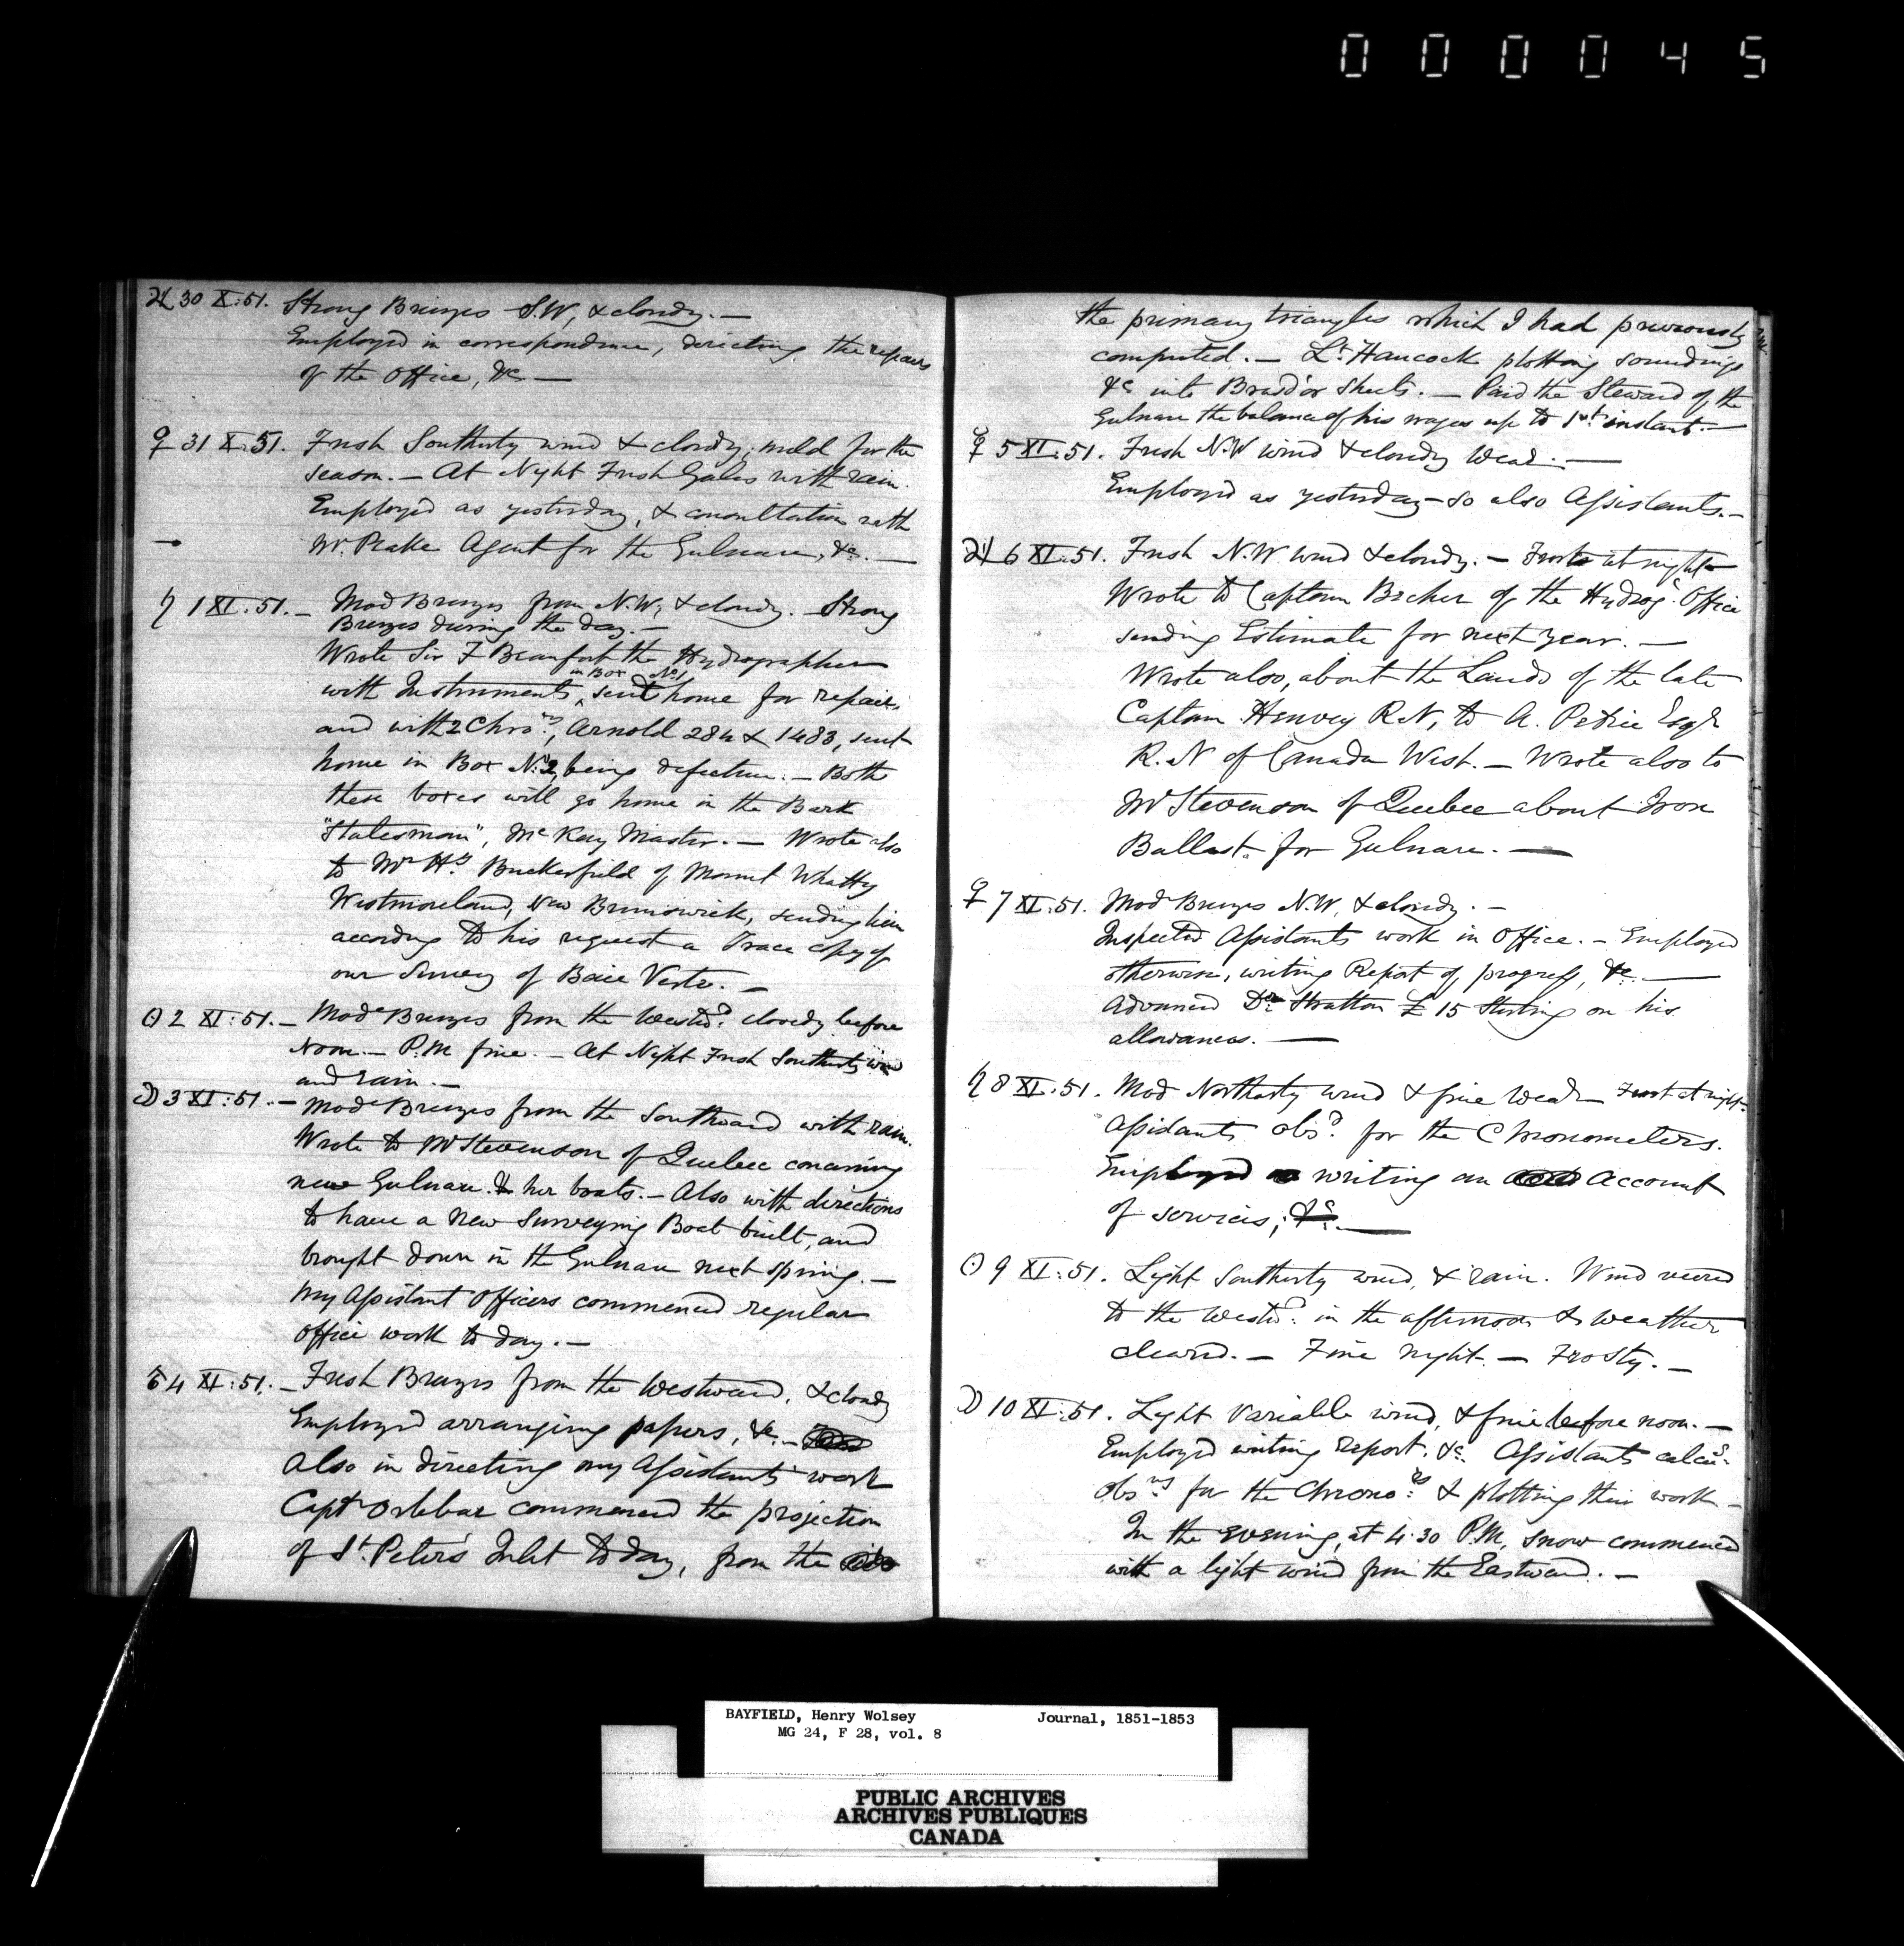 000045
♃ 30 X:51. Strong Breezes S.W, & cloudy. —
Employed in correspondence, directing the repairs
of the Office, &c —
♀ 31 X:51. Fresh Southerly wind & cloudy; mild for the
season. — At Night Fresh Gales with rain.
Employed as yesterday, & consultation with
Mr. Peake Agent for the Gulnare, &c. —
♄ 1 XI:51. — Mod Breezes from N.W, & cloudy. Strong
Breezes during the day. —
Wrote Sir F Beaufort the Hydrographer
in Box No 1
with Instruments, ‸ sent home for repair,
and with 2 Chrors, Arnold 284 & 1483, sent
home in Box No. 2, being defective. — Both
these boxes will go home in the Bark
"Statesman", McKay Master. — Wrote also
to Mr Hy. Buckerfield of Mount Whatty
Westmoreland, New Brunswick, sending him
according to his request a Trace copy of
our Survey of Baie Verte. —
☉ 2 XI:51. — Mode Breezes from the Westwd. cloudy before
Noon. — P.M fine. — At Night Fresh Southerly wind
and rain. —
☽ 3 XI:51. — Mode Breezes from the Southward with rain.
Wrote to Mr Stevenson of Quebec concerning
new Gulnare & her boats. — Also with directions
to have a New Surveying Boat built, and
brought down in the Gulnare next spring. —
My Assistant Officers commenced regular
office work to day. —
♂ 4 XI:51. — Fresh Breezes from the Westward, & cloudy
Employed arranging papers, &c. —
Also in directing my Assistants' work
Capt Orlebar commenced the projection
of St. Peter's Inlet to day, from the
the primary triangles which I had previously
computed. — Lt. Hancock plotting soundings
&c into Brasd'or Sheets. — Paid the Steward of the
Gulnare the balance of his wages up to 1st instant. —
☿ 5 XI:51. Fresh N.W wind & cloudy Wear. —
Employed as yesterday — so also Assistants. —
♃ 6 XI:51. Fresh N.W. wind & cloudy. — Frost at night —
Wrote to Captain Becher of the Hydrogc. Office
sending Estimate for next year. —
Wrote also, about the Lands of the late
Captain Henvey R.N, to A. Petrie Esqr
R.N of Canada West. — Wrote also to
Mr Stevenson of Quebec about Iron
Ballast for Gulnare. —
♀ 7 XI:51. Mod Breezes N.W, & cloudy. —
Inspected Assistants work in Office. — Employed
otherwise, writing Report of progress, &c. —
Advanced Dr Stratton £ 15 Sterling on his
allowances. —
♄ 8 XI:51. Mod Northerly wind & fine Wear — Frost at night —
Assistants obsd. for the Chronometers.
Employed writing an Account
of services, &c. —
☉ 9 XI:51. Light Southerly wind, & rain. Wind veered
to the Westd. in the afternoon & weather
cleared. — Fine night. — Frosty. —
☽ 10 XI:51. Light Variable wind, & fine before noon. —
Employed writing report, &c. Assistants calcug.
obsns for the Chronors. & plotting their work. —
In the evening, at 4.30 P.M, snow commenced
with a light wind from the Eastward. —
BAYFIELD, Henry Wolsey Journal, 1851-1853
MG 24, F 28, vol. 8
PUBLIC ARCHIVES
ARCHIVES PUBLIQUES
CANADA